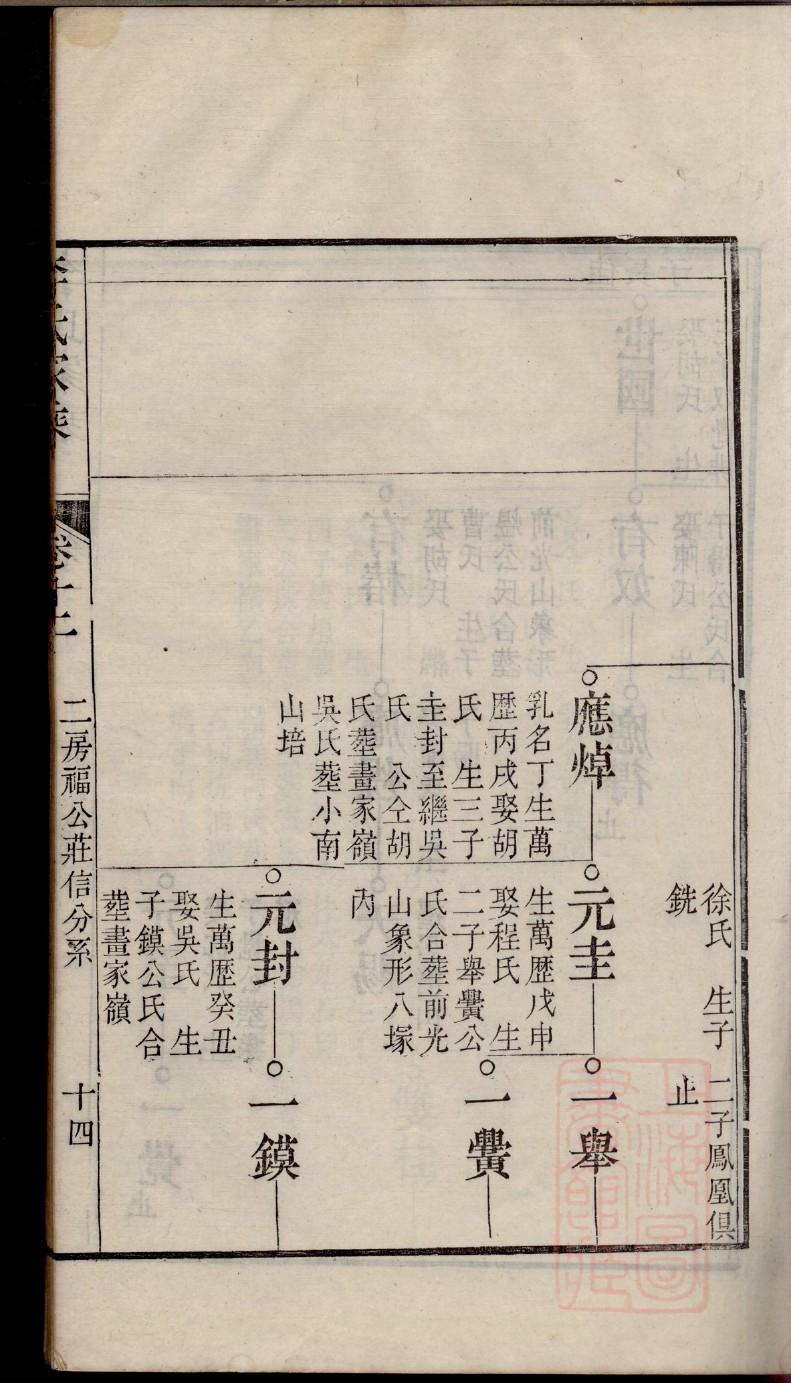 徐氏 生子
銑
二子鳳凰俱
止
應焯
乳名丁生萬
歷丙戌娶胡
氏 生三子
圭封至繼吳
氏 公仝胡
氏塟畫家嶺
吳氏塟小南
山培
元圭
生萬歷戊申
娶程氏 生
二子舉黌公
氏合塟前光
山象形八塚
內
一舉
一黌
元封
生萬歷癸丑
娶吳氏 生
子鏌公氏合
塟畫家嶺
一鏌
李氏家乘
卷十二
二房福公莊信分系
十四